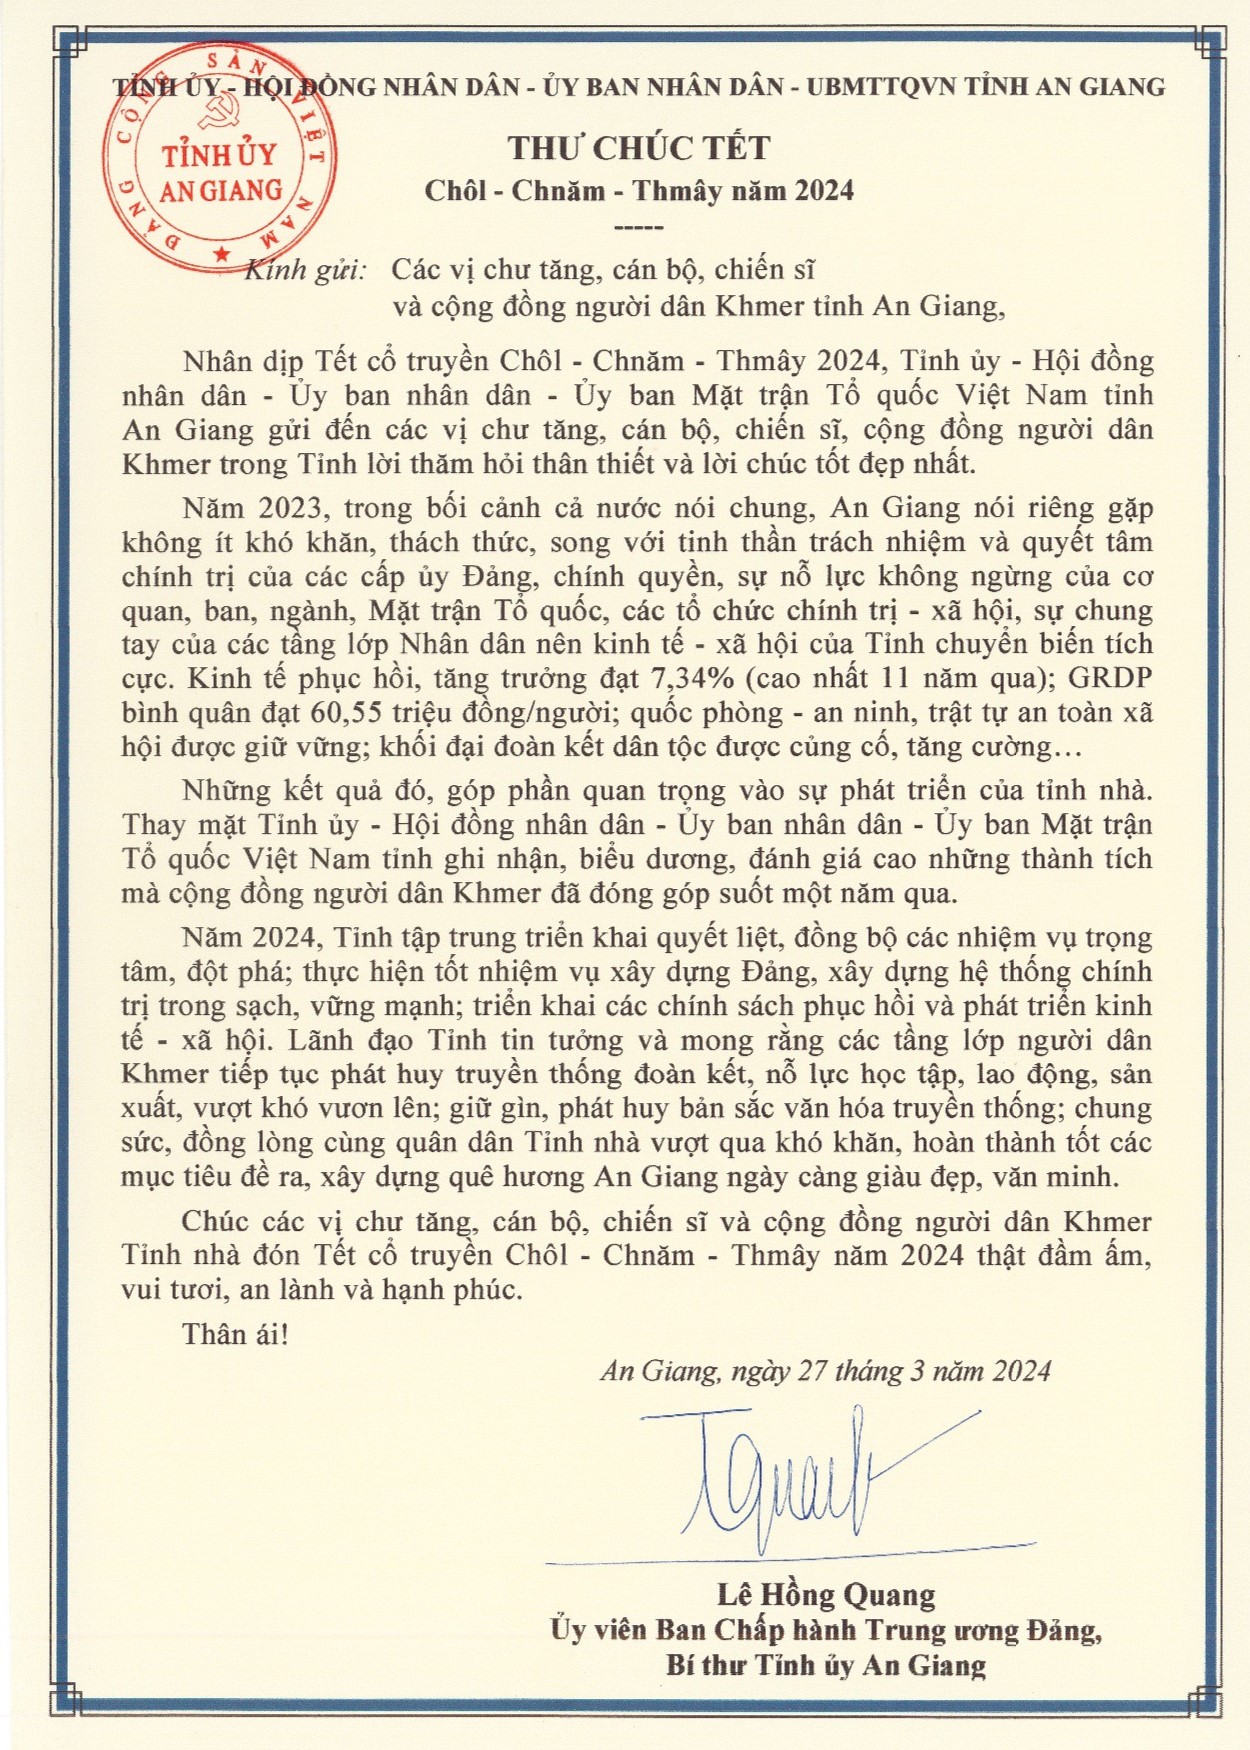 TỈNH ỦY - HỘI ĐỒNG NHÂN DÂN - ỦY BAN NHÂN DÂN - UBMTTQVN TỈNH AN GIANG
ĐẢNG CỘNG SẢN VIỆT NAM
TỈNH ỦY
AN GIANG
THƯ CHÚC TẾT
Chôl - Chnăm - Thmây năm 2024
-----
Kính gửi: Các vị chư tăng, cán bộ, chiến sĩ
và cộng đồng người dân Khmer tỉnh An Giang,
Nhân dịp Tết cổ truyền Chôl - Chnăm - Thmây 2024, Tỉnh ủy - Hội đồng
nhân dân - Ủy ban nhân dân - Ủy ban Mặt trận Tổ quốc Việt Nam tỉnh
An Giang gửi đến các vị chư tăng, cán bộ, chiến sĩ, cộng đồng người dân
Khmer trong Tỉnh lời thăm hỏi thân thiết và lời chúc tốt đẹp nhất.
Năm 2023, trong bối cảnh cả nước nói chung, An Giang nói riêng gặp
không ít khó khăn, thách thức, song với tinh thần trách nhiệm và quyết tâm
chính trị của các cấp ủy Đảng, chính quyền, sự nỗ lực không ngừng của cơ
quan, ban, ngành, Mặt trận Tổ quốc, các tổ chức chính trị - xã hội, sự chung
tay của các tầng lớp Nhân dân nên kinh tế - xã hội của Tỉnh chuyển biến tích
cực. Kinh tế phục hồi, tăng trưởng đạt 7,34% (cao nhất 11 năm qua); GRDP
bình quân đạt 60,55 triệu đồng/người; quốc phòng - an ninh, trật tự an toàn xã
hội được giữ vững; khối đại đoàn kết dân tộc được củng cố, tăng cường…
Những kết quả đó, góp phần quan trọng vào sự phát triển của tỉnh nhà.
Thay mặt Tỉnh ủy - Hội đồng nhân dân - Ủy ban nhân dân - Ủy ban Mặt trận
Tổ quốc Việt Nam tỉnh ghi nhận, biểu dương, đánh giá cao những thành tích
mà cộng đồng người dân Khmer đã đóng góp suốt một năm qua.
Năm 2024, Tỉnh tập trung triển khai quyết liệt, đồng bộ các nhiệm vụ trọng
tâm, đột phá; thực hiện tốt nhiệm vụ xây dựng Đảng, xây dựng hệ thống chính
trị trong sạch, vững mạnh; triển khai các chính sách phục hồi và phát triển kinh
tế - xã hội. Lãnh đạo Tỉnh tin tưởng và mong rằng các tầng lớp người dân
Khmer tiếp tục phát huy truyền thống đoàn kết, nỗ lực học tập, lao động, sản
xuất, vượt khó vươn lên; giữ gìn, phát huy bản sắc văn hóa truyền thống; chung
sức, đồng lòng cùng quân dân Tỉnh nhà vượt qua khó khăn, hoàn thành tốt các
mục tiêu đề ra, xây dựng quê hương An Giang ngày càng giàu đẹp, văn minh.
Chúc các vị chư tăng, cán bộ, chiến sĩ và cộng đồng người dân Khmer
Tỉnh nhà đón Tết cổ truyền Chôl - Chnăm - Thmây năm 2024 thật đầm ấm,
vui tươi, an lành và hạnh phúc.
Thân ái!
An Giang, ngày 27 tháng 3 năm 2024
Lê Hồng Quang
Ủy viên Ban Chấp hành Trung ương Đảng,
Bí thư Tỉnh ủy An Giang